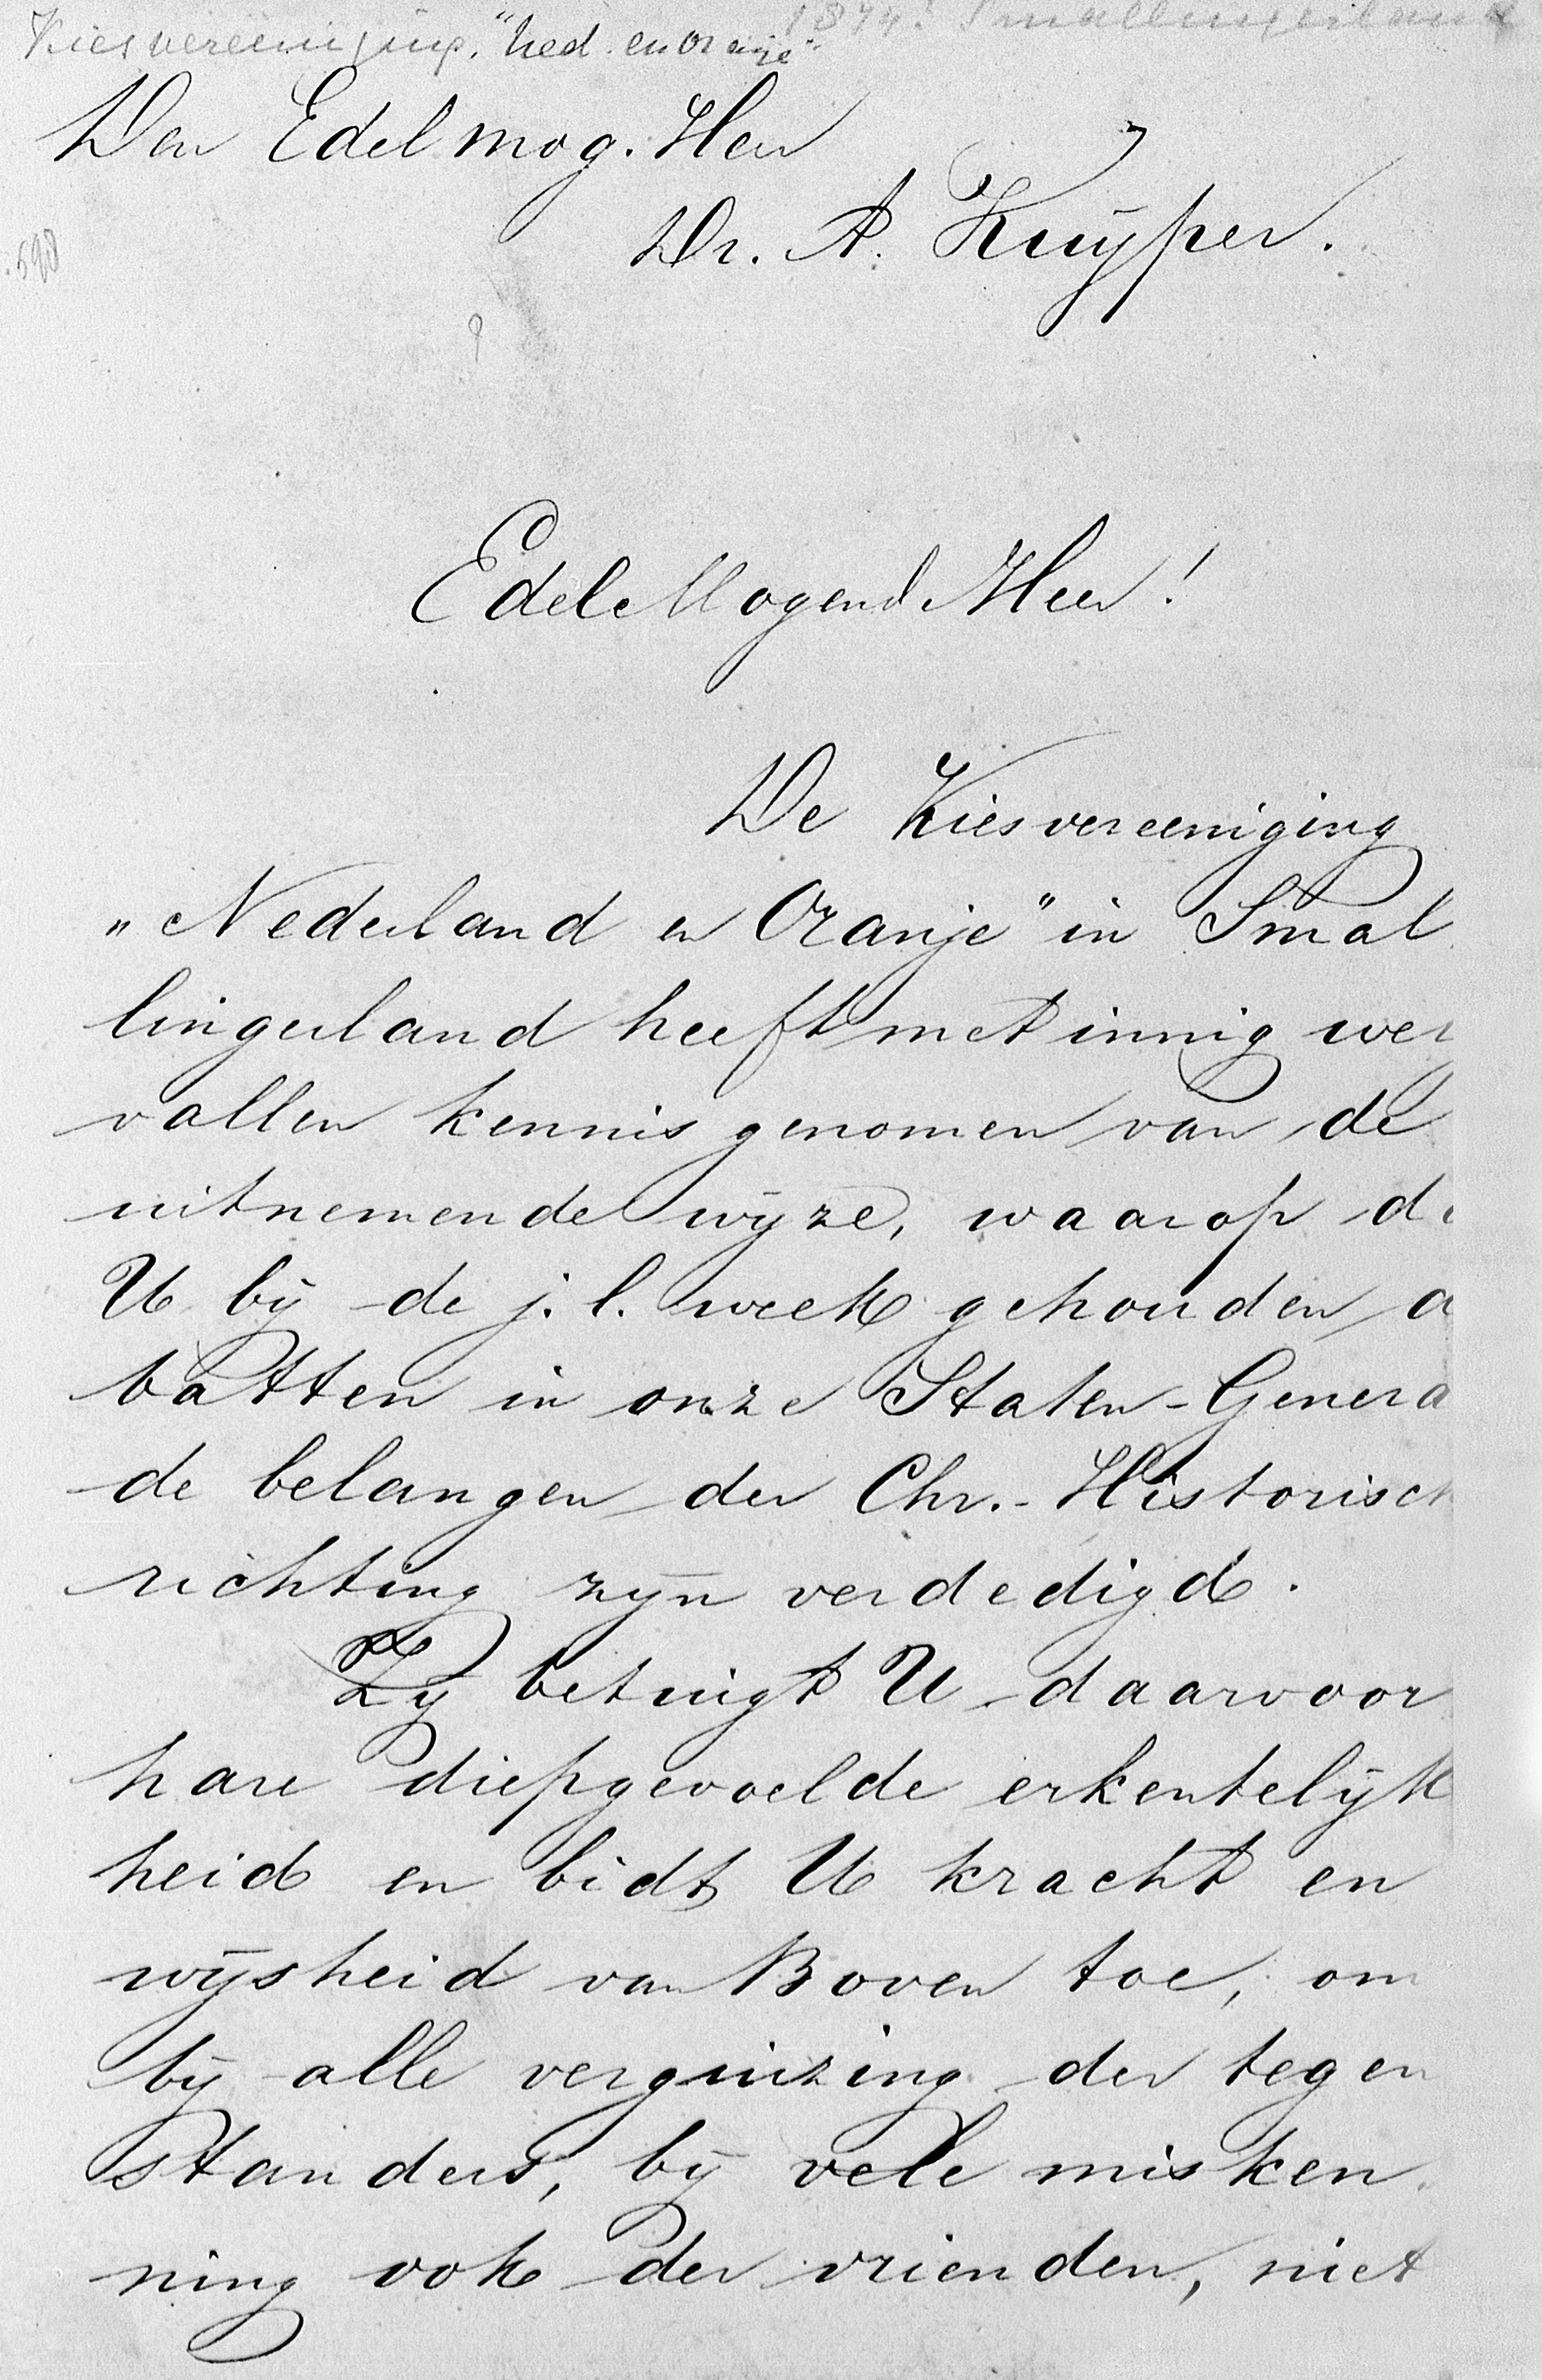 1874? Smallingerland
Kiesvereeniging. "Ned. en Oranje".
Den Edelmog. Heer
Dr. A. Kuÿper.
598
Edele Mogend Heer!
De Kiesvereeniging
„Nederland en Oranje" in Smal
lingerland heeft met innig wel
vallen kennis genomen van de
uitnemende wÿze, waarop d
U bÿ de j.l. week gehouden
batten in onze Staten-Genera
de belangen der Chr.-Historisch
richting zÿn verdedigd.
Zÿ betuigt U daarvoor
hare diepgevoelde erkentelÿk
heid en bidt U kracht en
wÿsheid van Boven toe, om
bÿ alle verguizing der tegen
standers, bÿ vele misken
ning ook der vrienden, niet